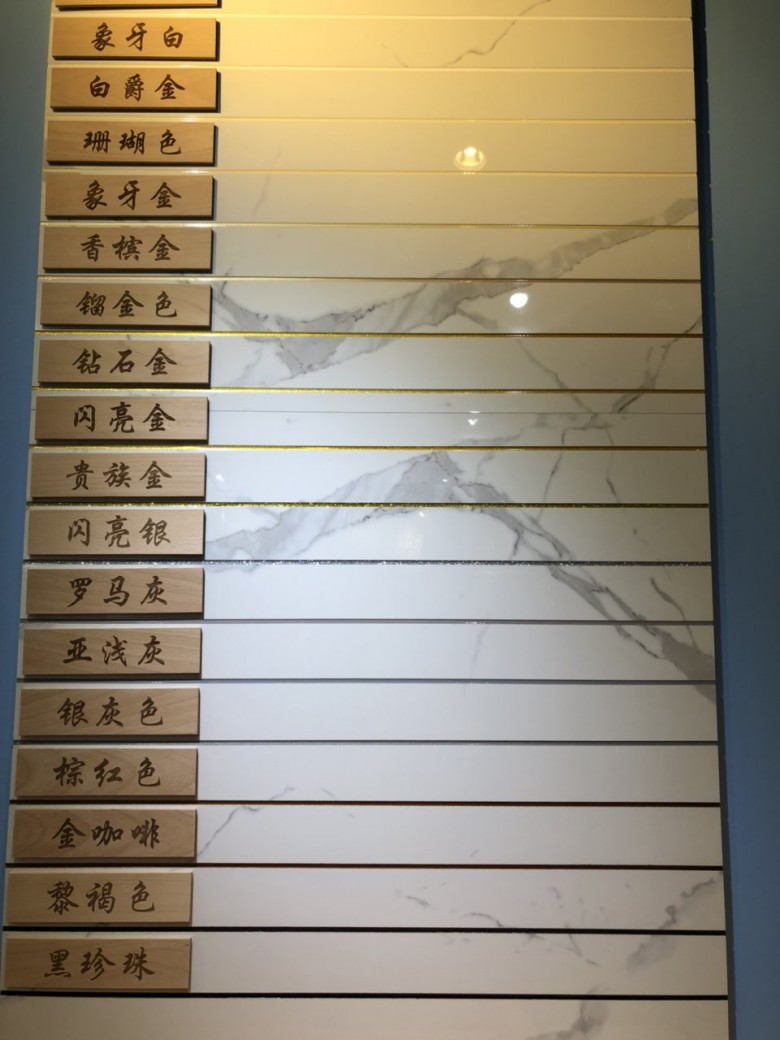 象牙白
白爵金
珊瑚色
象牙金
香槟金
镏金色
钻石金
闪亮金
贵族金
闪亮银
罗马灰
亚浅灰
银灰色
棕红色
金咖啡
黎褐色
黑珍珠